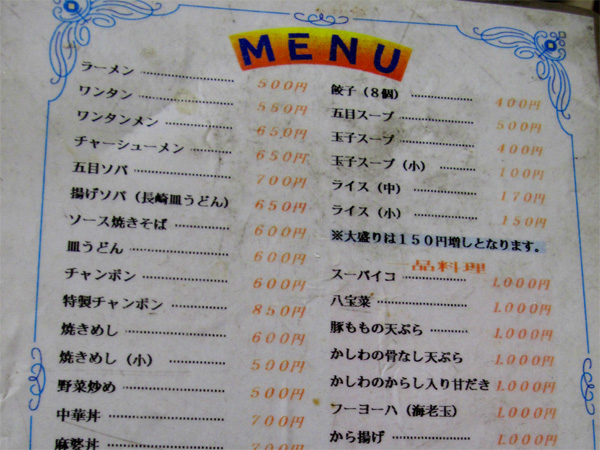 MENU
ラーメン 500円
ワンタン 550円
ワンタンメン 650円
チャーシューメン 650円
五目ソバ 700円
揚げソバ（長崎皿うどん） 650円
ソース焼きそば 600円
皿うどん 600円
チャンポン 600円
特製チャンポン 850円
焼きめし 600円
焼きめし（小） 500円
野菜炒め 500円
中華丼 700円
麻婆丼 700円
餃子（8個） 400円
五目スープ 500円
玉子スープ 400円
玉子スープ（小） 100円
ライス（中） 170円
ライス（小） 150円
※大盛りは１５０円増しとなります。
一品料理
スーパイコ 1,000円
八宝菜 1,000円
豚ももの天ぷら 1,000円
かしわの骨なし天ぷら 1,000円
かしわのからし入り甘だき 1,000円
フーヨーハ（海老玉） 1,000円
から揚げ 1,000円